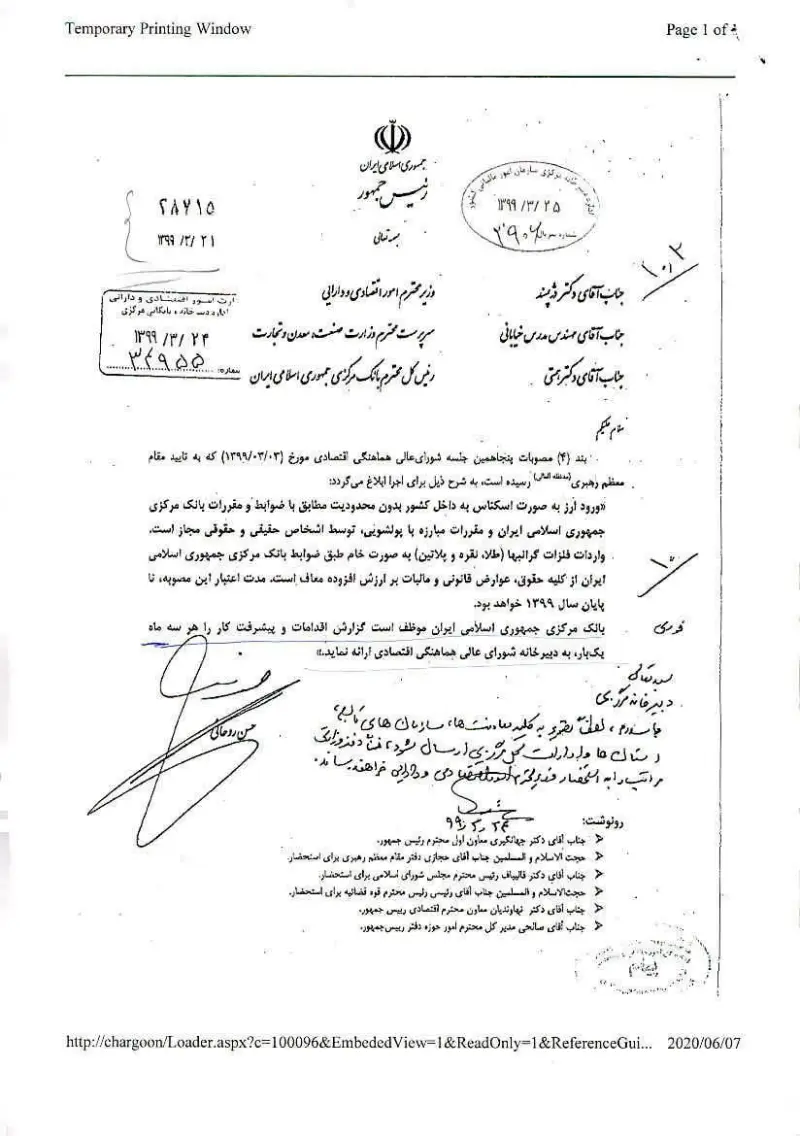 Temporary Printing Window
Page 1 of
جمهوری اسلامی ایران
رئیس جمهور
بسمه تعالی
۲۸۷۱۵
۱۳۹۹/۳/۲۱
اداره دبیرخانه مرکزی سازمان امور مالیاتی کشور
۱۳۹۹/۳/۲۵
شماره سریال
وزارت امور اقتصادی و دارائی
اداره دبیرخانه و بایگانی مرکزی
۱۳۹۹/۳/۲۴
شماره: ۳۴۹۵۵
جناب آقای دکتر دژپسند وزیر محترم امور اقتصادی و دارایی
جناب آقای مهندس مدرس خیابانی سرپرست محترم وزارت صنعت، معدن و تجارت
جناب آقای دکتر همتی رئیس کل محترم بانک مرکزی جمهوری اسلامی ایران
سلام علیکم
بند (۴) مصوبات پنجاهمین جلسه شورای‌عالی هماهنگی اقتصادی مورخ (۱۳۹۹/۰۳/۰۳) که به تایید مقام
معظم رهبری (مدظله العالی) رسیده است، به شرح ذیل برای اجرا ابلاغ می‌گردد:
«ورود ارز به صورت اسکناس به داخل کشور بدون محدودیت مطابق با ضوابط و مقررات بانک مرکزی
جمهوری اسلامی ایران و مقررات مبارزه با پولشویی، توسط اشخاص حقیقی و حقوقی مجاز است.
واردات فلزات گرانبها (طلا، نقره و پلاتین) به صورت خام طبق ضوابط بانک مرکزی جمهوری اسلامی
ایران از کلیه حقوق، عوارض قانونی و مالیات بر ارزش افزوده معاف است. مدت اعتبار این مصوبه، تا
پایان سال ۱۳۹۹ خواهد بود.
بانک مرکزی جمهوری اسلامی ایران موظف است گزارش اقدامات و پیشرفت کار را هر سه ماه
یک‌بار، به دبیرخانه شورای عالی هماهنگی اقتصادی ارائه نماید.»
فوری
حسن روحانی
بسمه تعالی
دبیرخانه مرکزی
با سلام، لطفاً تصویر به کلیه معاونت ها، سازمان های تابع،
استان ها و ادارات کل مرکزی ارسال شود، ضمناً دفتر وزارتی
مراتب را به استحضار وزیر محترم امور اقتصادی و دارایی خواهند رساند.
رونوشت:
جناب آقای دکتر جهانگیری معاون اول محترم رئیس جمهور.
حجت الاسلام و المسلمین جناب آقای حجازی دفتر مقام معظم رهبری برای استحضار.
جناب آقای دکتر قالیباف رئیس محترم مجلس شورای اسلامی برای استحضار.
حجت‌الاسلام و المسلمین جناب آقای رئیسی رئیس محترم قوه قضائیه برای استحضار.
جناب آقای دکتر نهاوندیان معاون محترم اقتصادی رییس جمهور.
جناب آقای صالحی مدیر کل محترم امور حوزه دفتر رییس‌جمهور.
http://chargoon/Loader.aspx?c=100096&EmbededView=1&ReadOnly=1&ReferenceGui... 2020/06/07